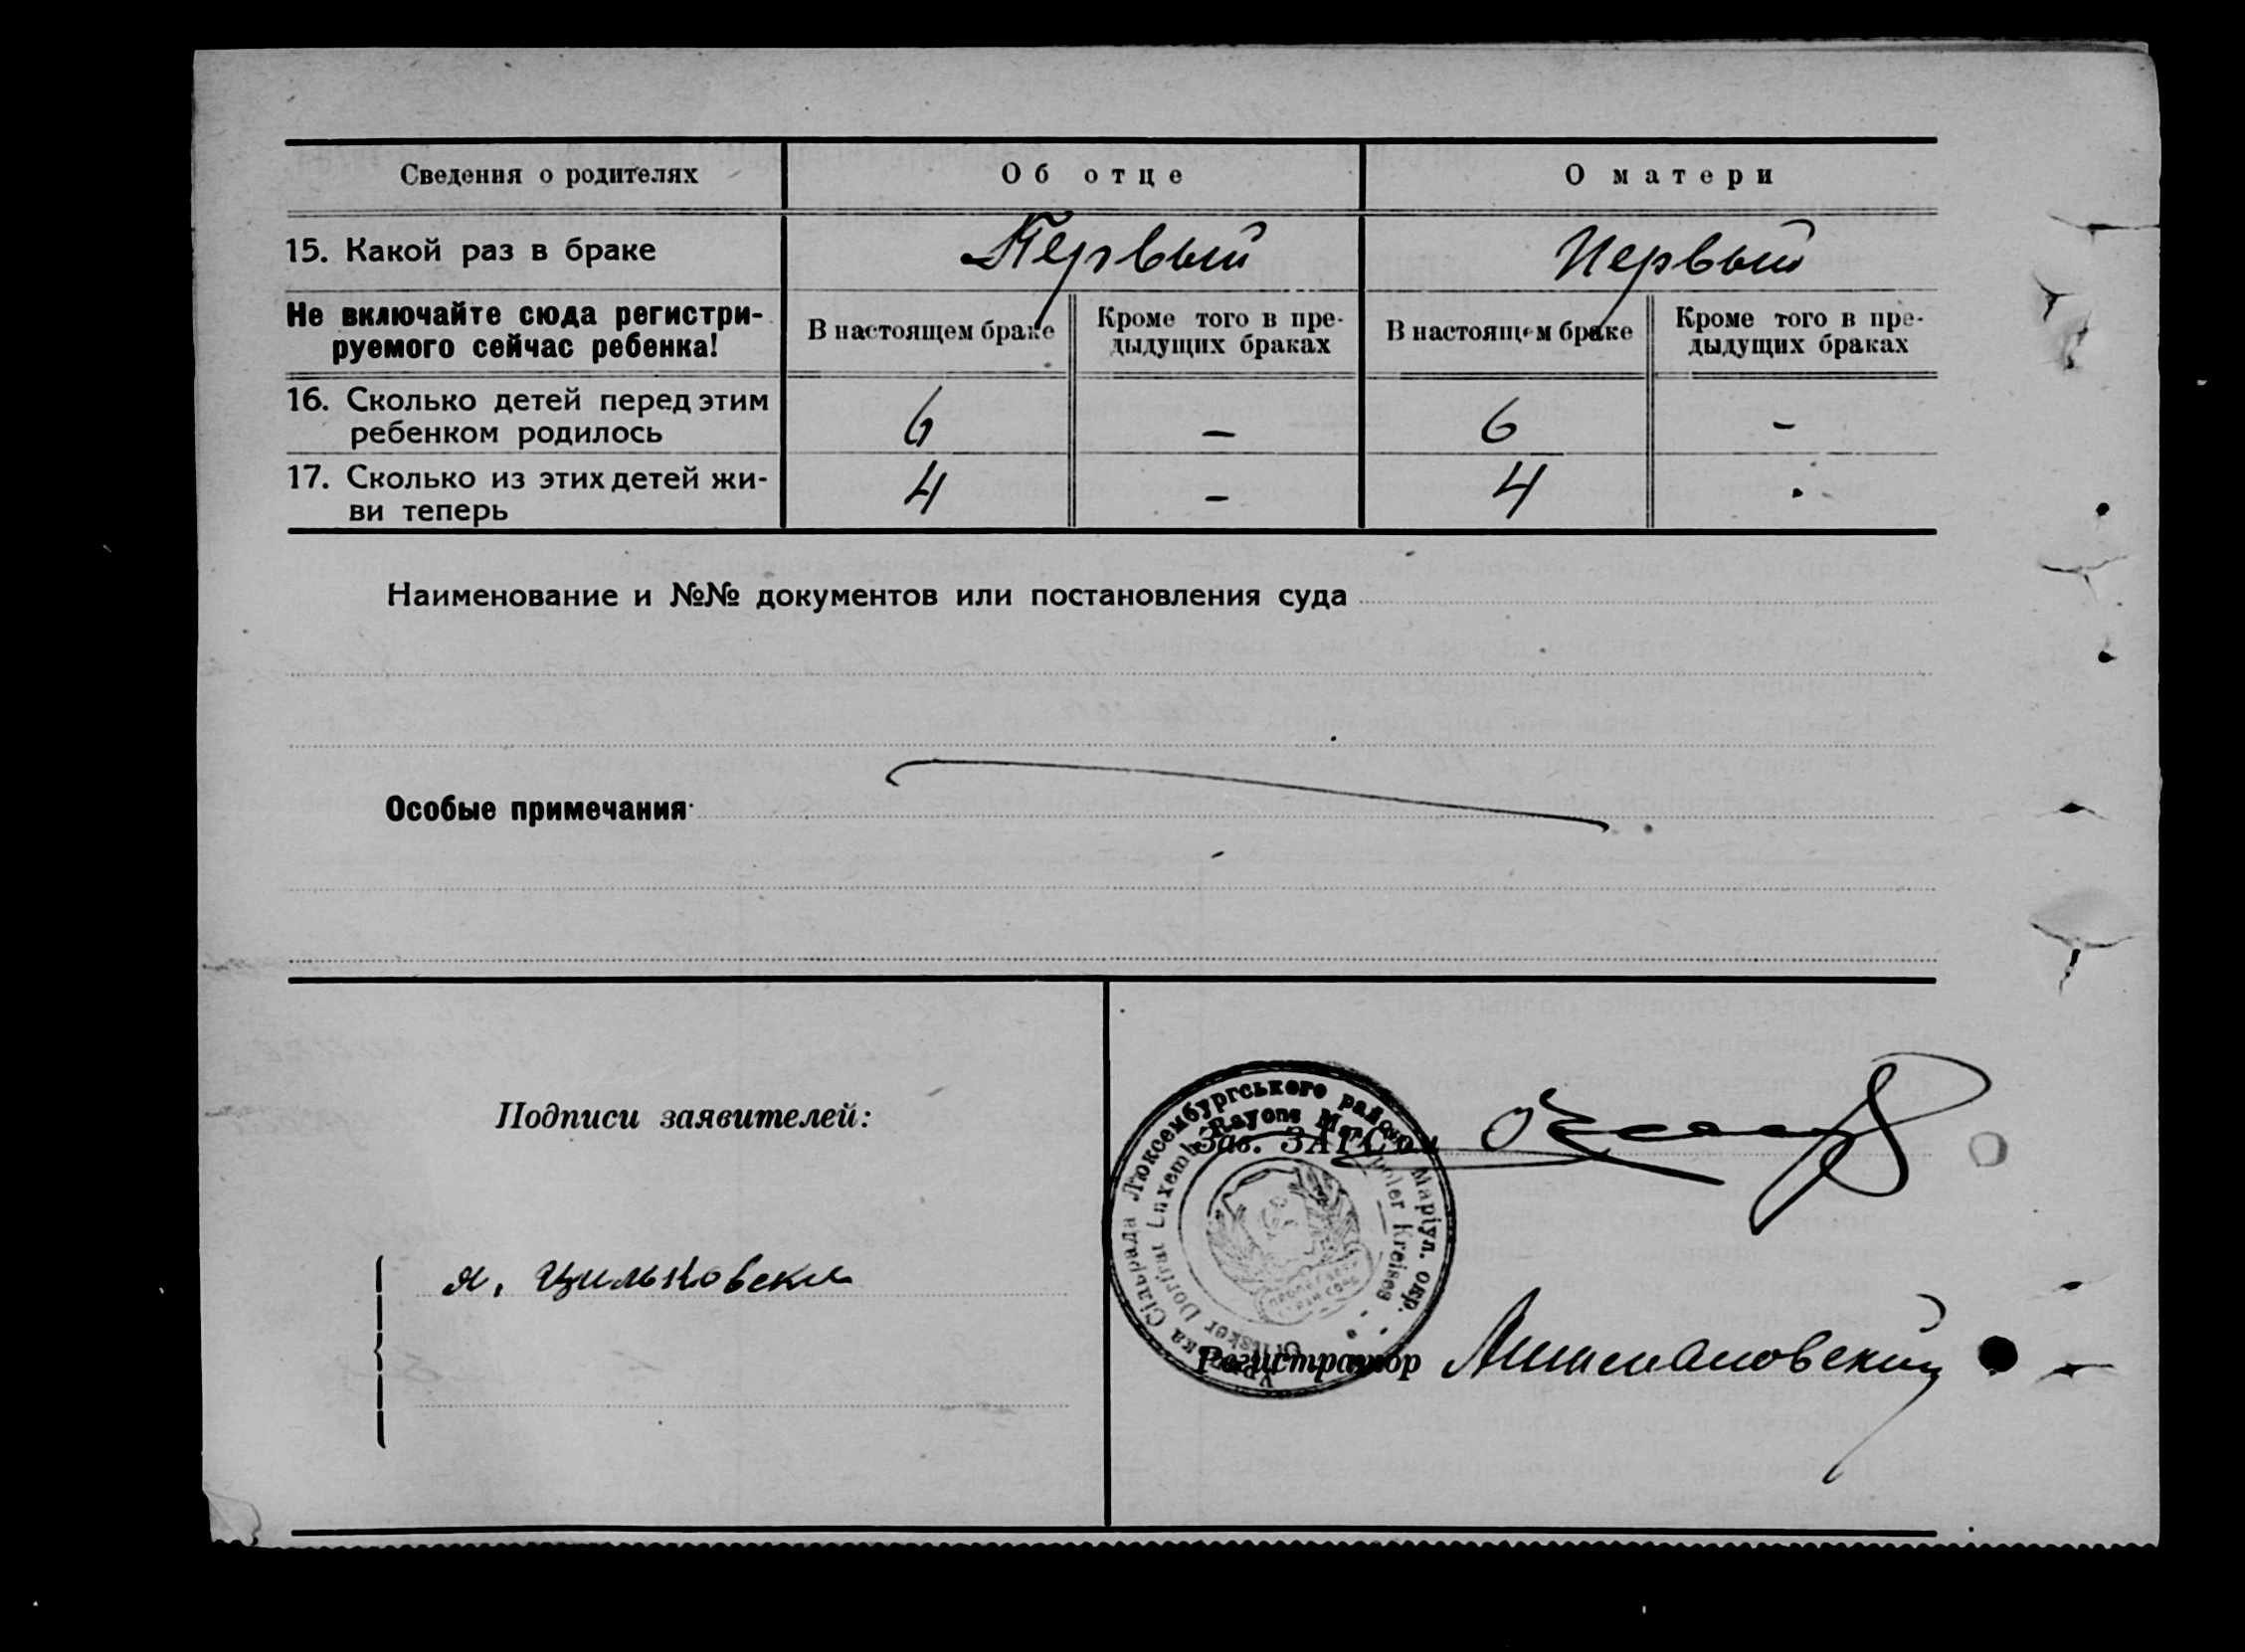 Сведения о родителях Об отце О матери
15. Какой раз в браке Первый Первый
Не включайте сюда регистри-
руемого сейчас ребенка!
В настоящем браке
Кроме того в пре-
дыдущих браках
В настоящем браке
Кроме того в пре-
дыдущих браках
16. Сколько детей перед этим
ребенком родилось
6 - 6 -
17. Сколько из этих детей жи-
ви теперь
4 - 4
Наименование и №№ документов или постановления суда
Особые примечания
Подписи заявителей:
Зав. ЗАГСом
Сільрада Люксембургського району Маріул. окр.
Dorfrat Luxemb. Rayons Mariupoler Kreises
я, Цильковски
Регистратор